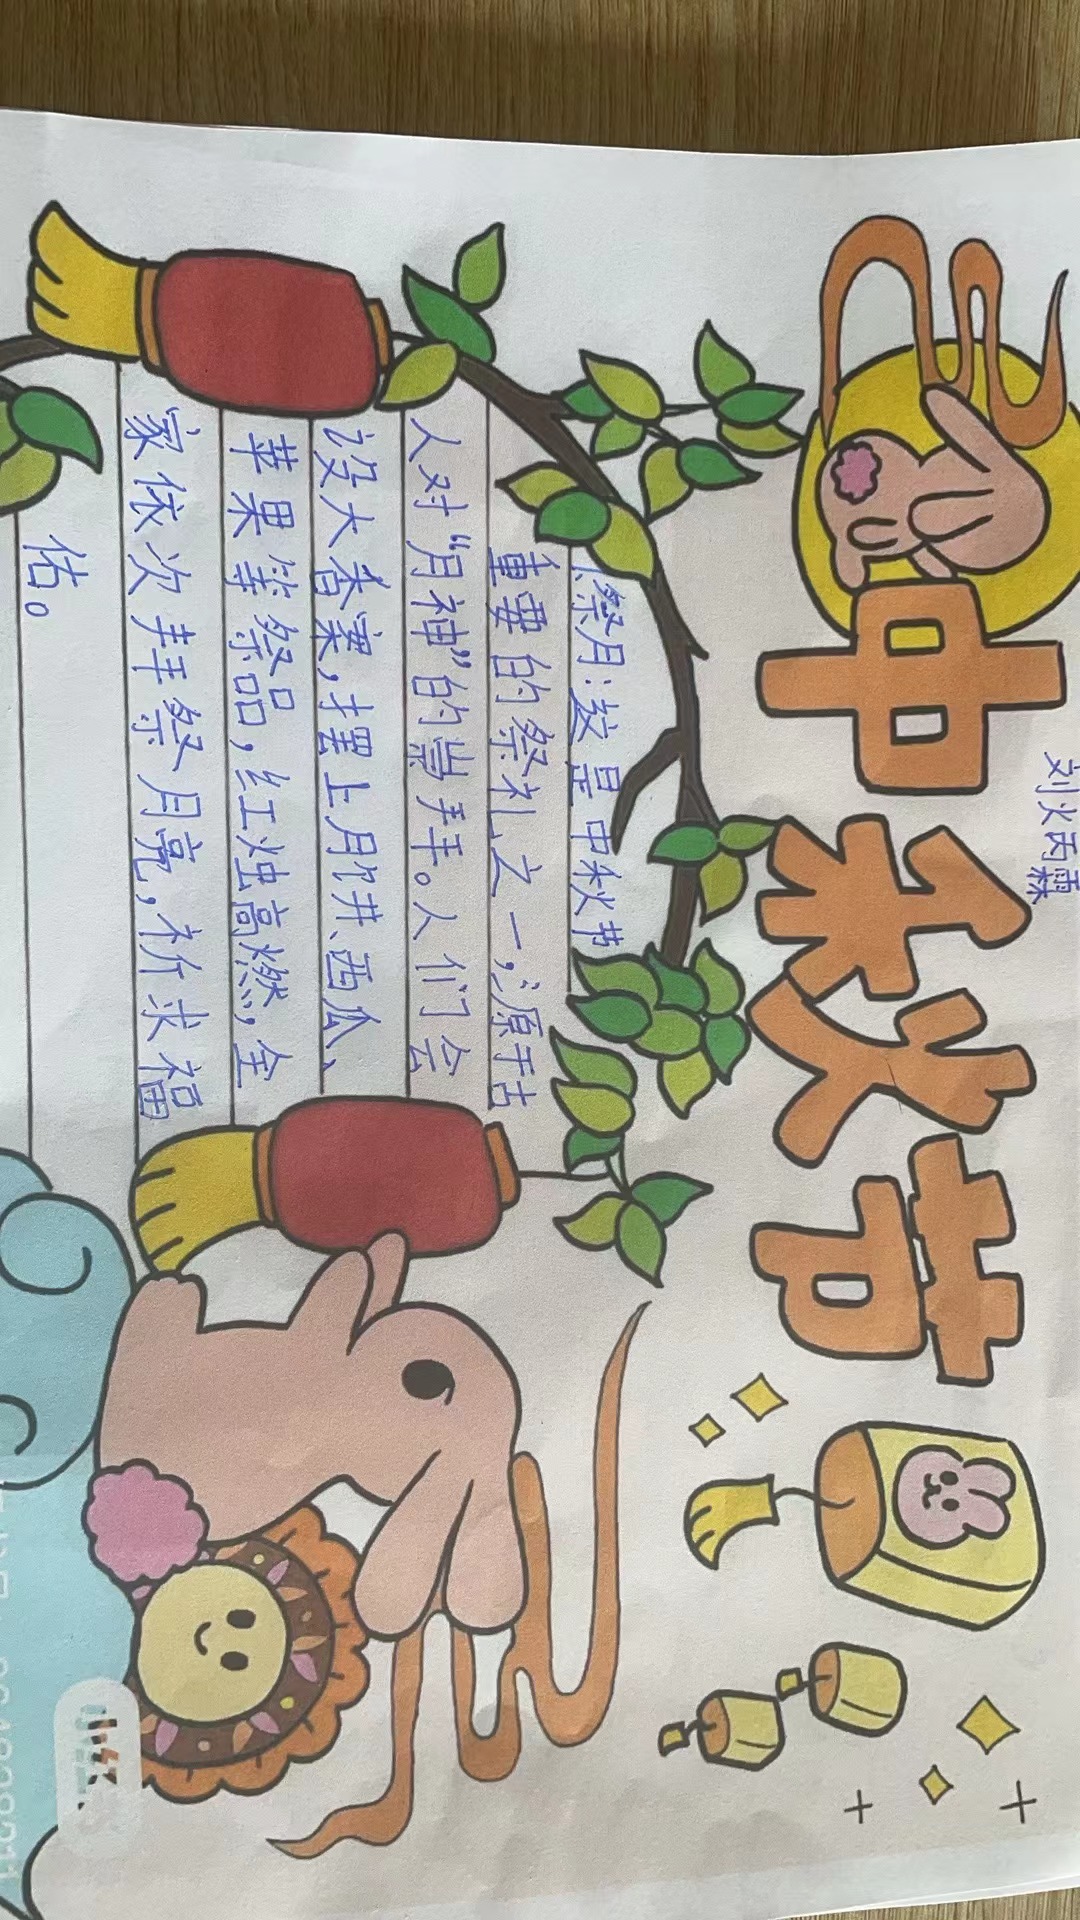 刘炳霖
中秋节
祭月:这是中秋节
重要的祭礼之一,源于古
人对“月神”的崇拜。人们会
设大香案,摆上月饼、西瓜、
苹果等祭品,红烛高燃,全
家依次拜祭月亮,祈求福
佑。